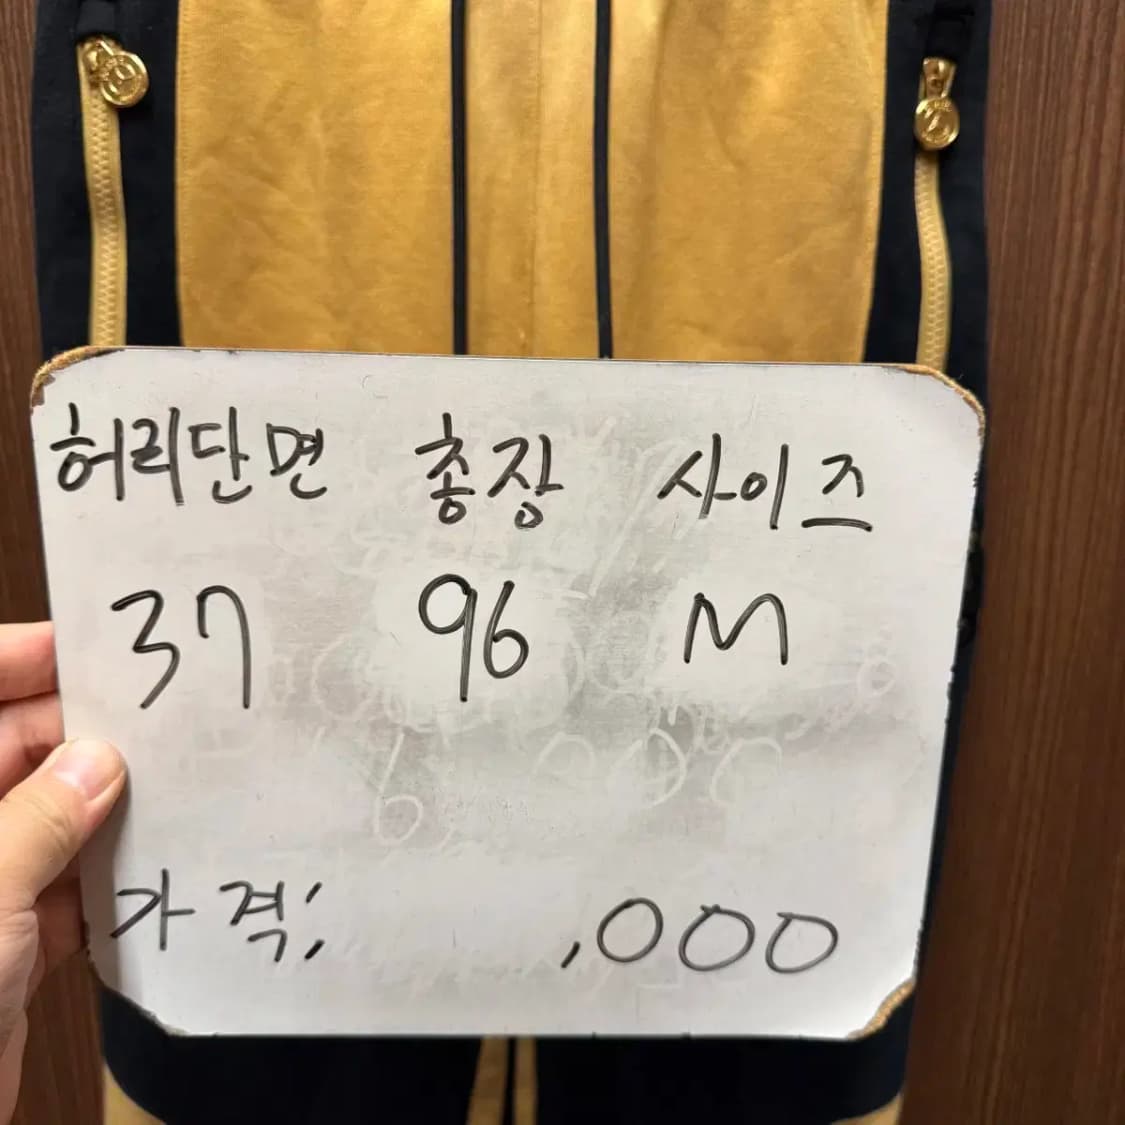 허리단면 총장 사이즈
37 96 M
가격: ,000